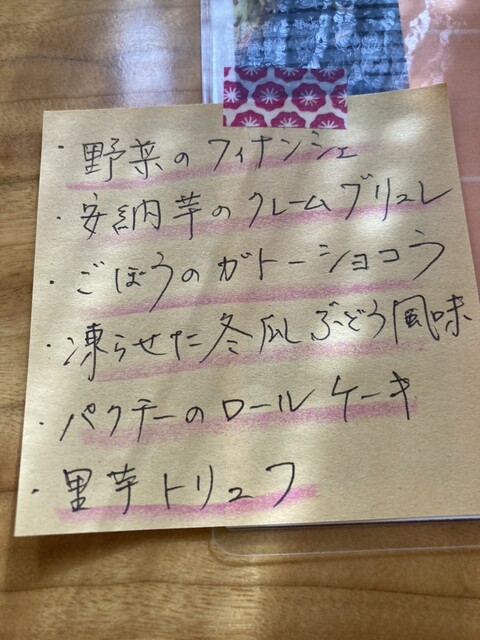 ・野菜のフィナンシェ
・安納芋のクレームブリュレ
・ごぼうのガトーショコラ
・凍らせた冬瓜ぶどう風味
・パクチーのロールケーキ
・里芋トリュフ